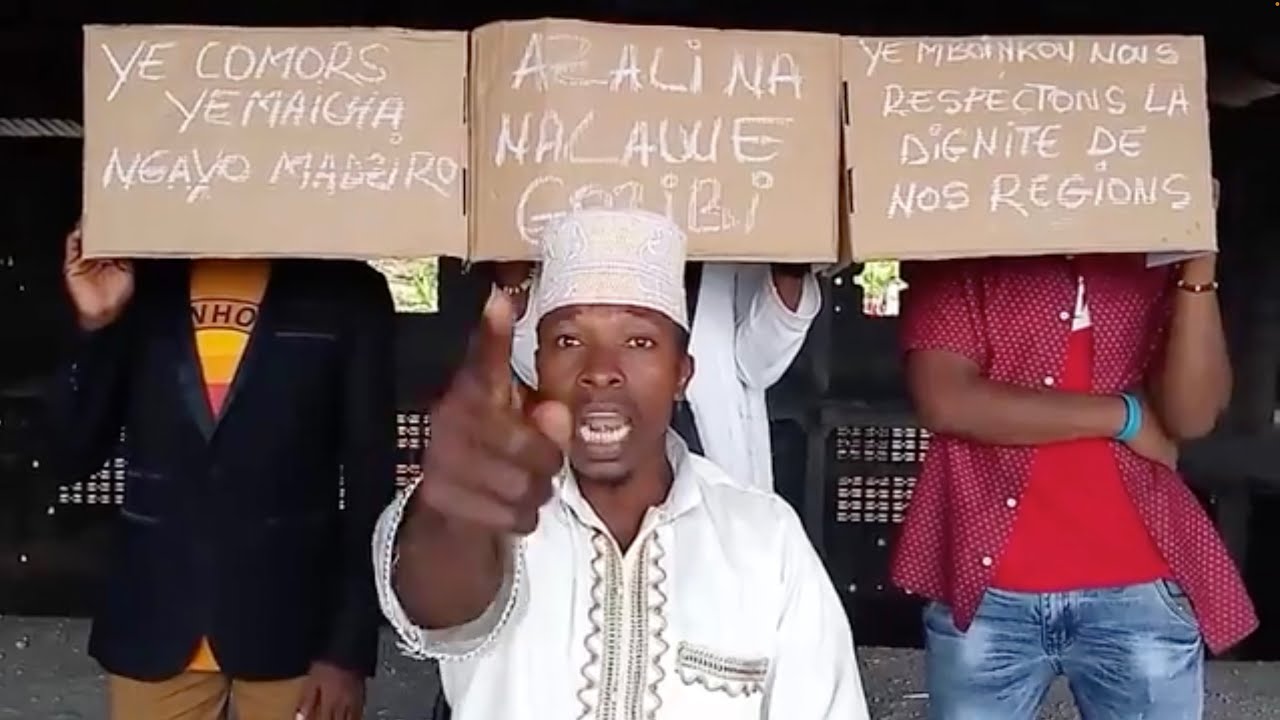 YE COMORS
YE MAICHA
NGAYO MADZIRO
AZALI NA
NALAWE
GOZIBI
YE MBOINKOU NOUS
RESPECTONS LA
DIGNITE DE
NOS REGIONS
NHO